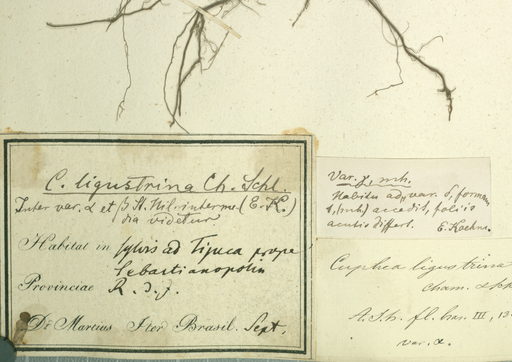 C. ligustrina Ch. Schl.
Inter var. α et β St. Hil. interme (E. K.)
dia videtur
Habitat in sylvis ad Tijuca prope
Sebastianopolin
Provinciae R. d. J.
Dr Martius Iter Brasil. Sept.
Var. γ, mh.
Habitu ad var. δ, formam
(mh) accedit, foliis
acutis differt. E. Koehne.
Cuphea ligustrina
Cham. &
A. S. h. fl. bras. III, 
var. α.